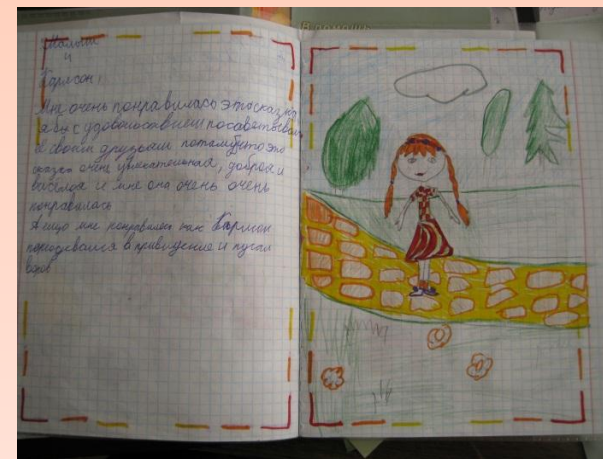 В помощь
Малыш
и
Карлсон!
Мне очень понравилась эта сказка
я бы с удовольствием посоветовала
её своим друзьям, потому что эта
сказка очень увлекательная, добрая и
весёлая и мне она очень очень
понравилась
А ещё мне понравилось как Карлсон
переодевался в привидение и пугал
воров